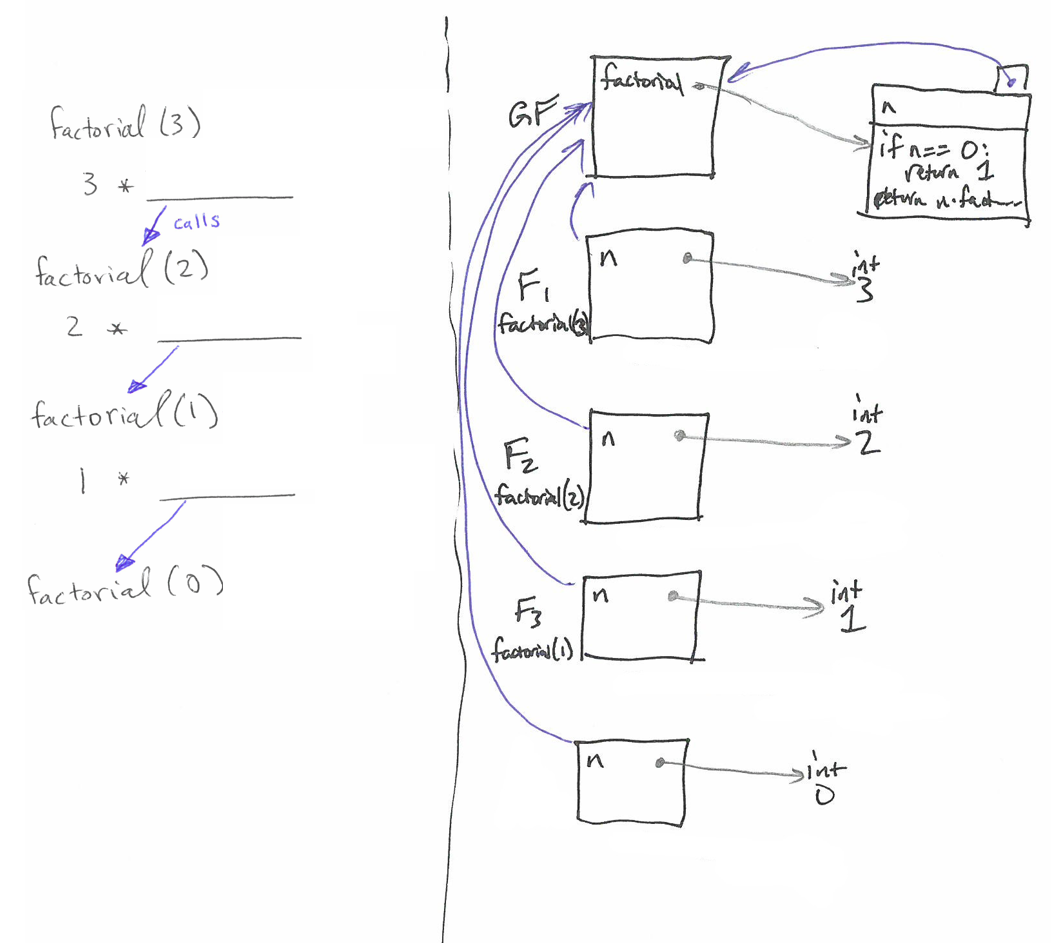 factorial (3)
3 * ________
calls
factorial (2)
2 * ________
factorial (1)
1 * ________
factorial (0)
GF
factorial
n
if n == 0:
return 1
return n·fact
F1
factorial(3)
n
int
3
F2
factorial(2)
n
int
2
F3
factorial(1)
n
int
1
n
int
0